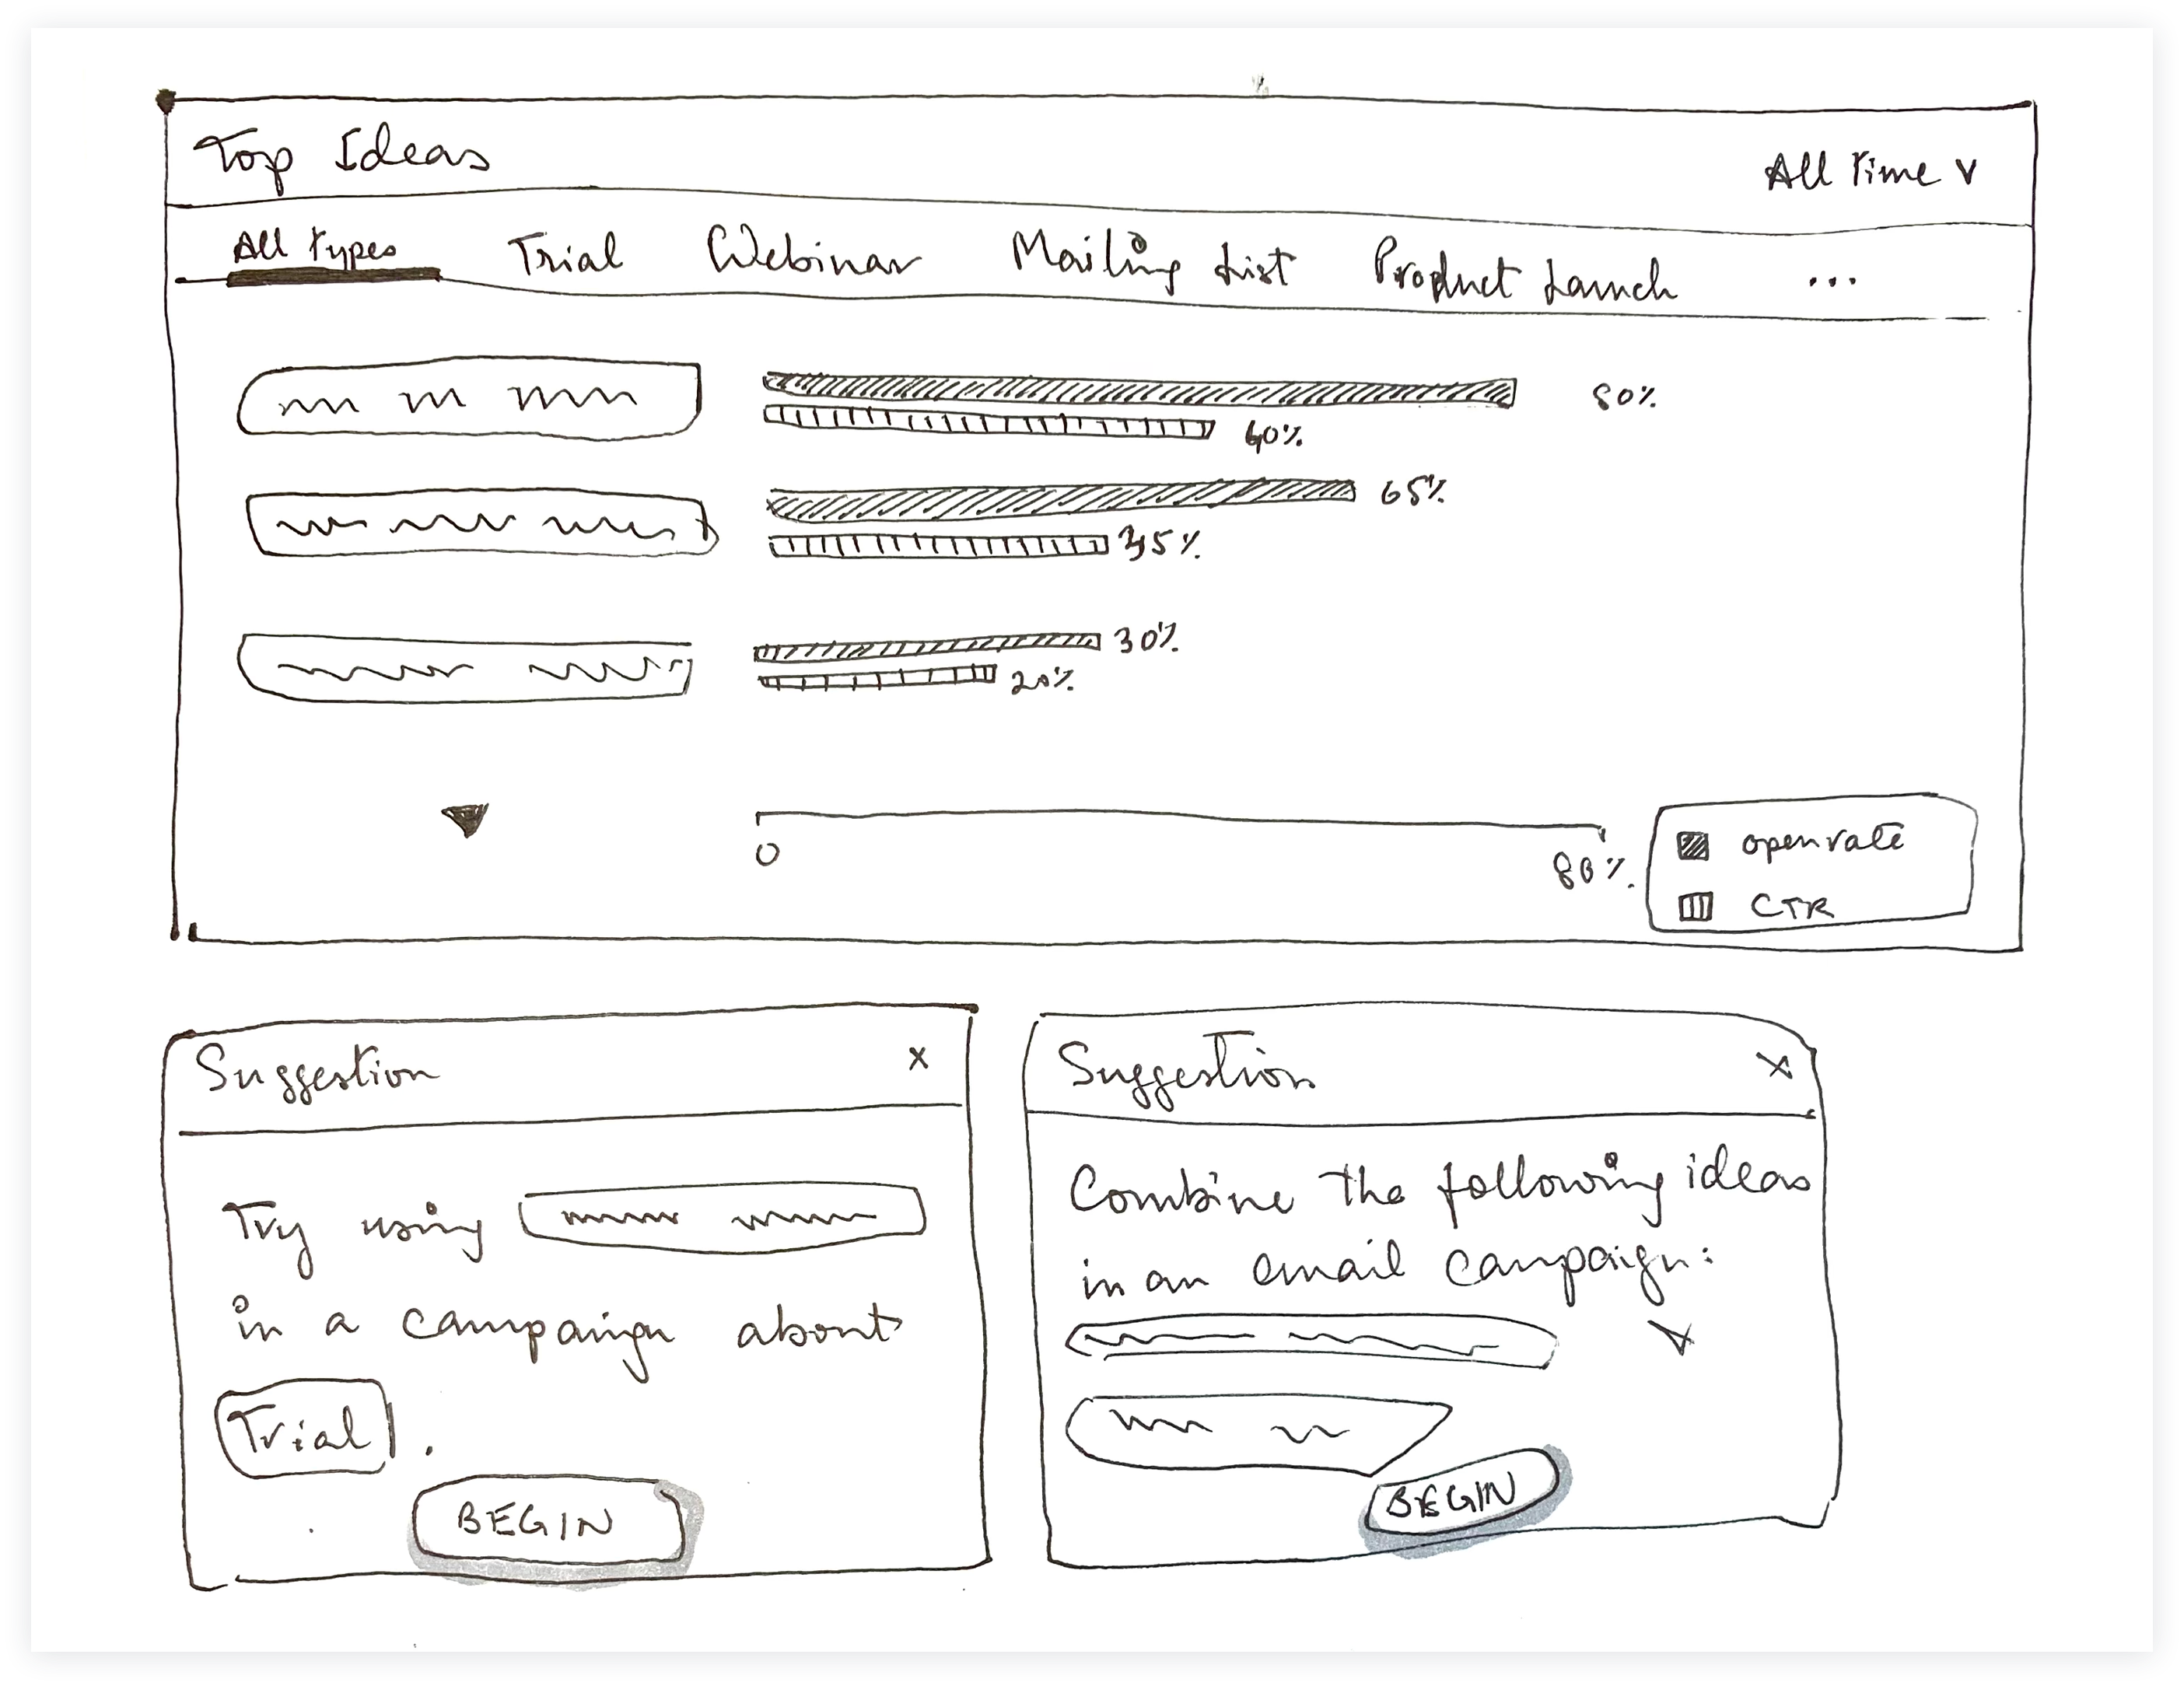 Top Ideas
All Time v
All Types Trial Webinar Mailing List Product Launch ...
80%
65%
30%
20%
0
80%
open rate
CTR
Suggestion x
Try using
in a campaign about
Trial.
BEGIN
Suggestion x
Combine the following ideas
in an email campaign:
BEGIN